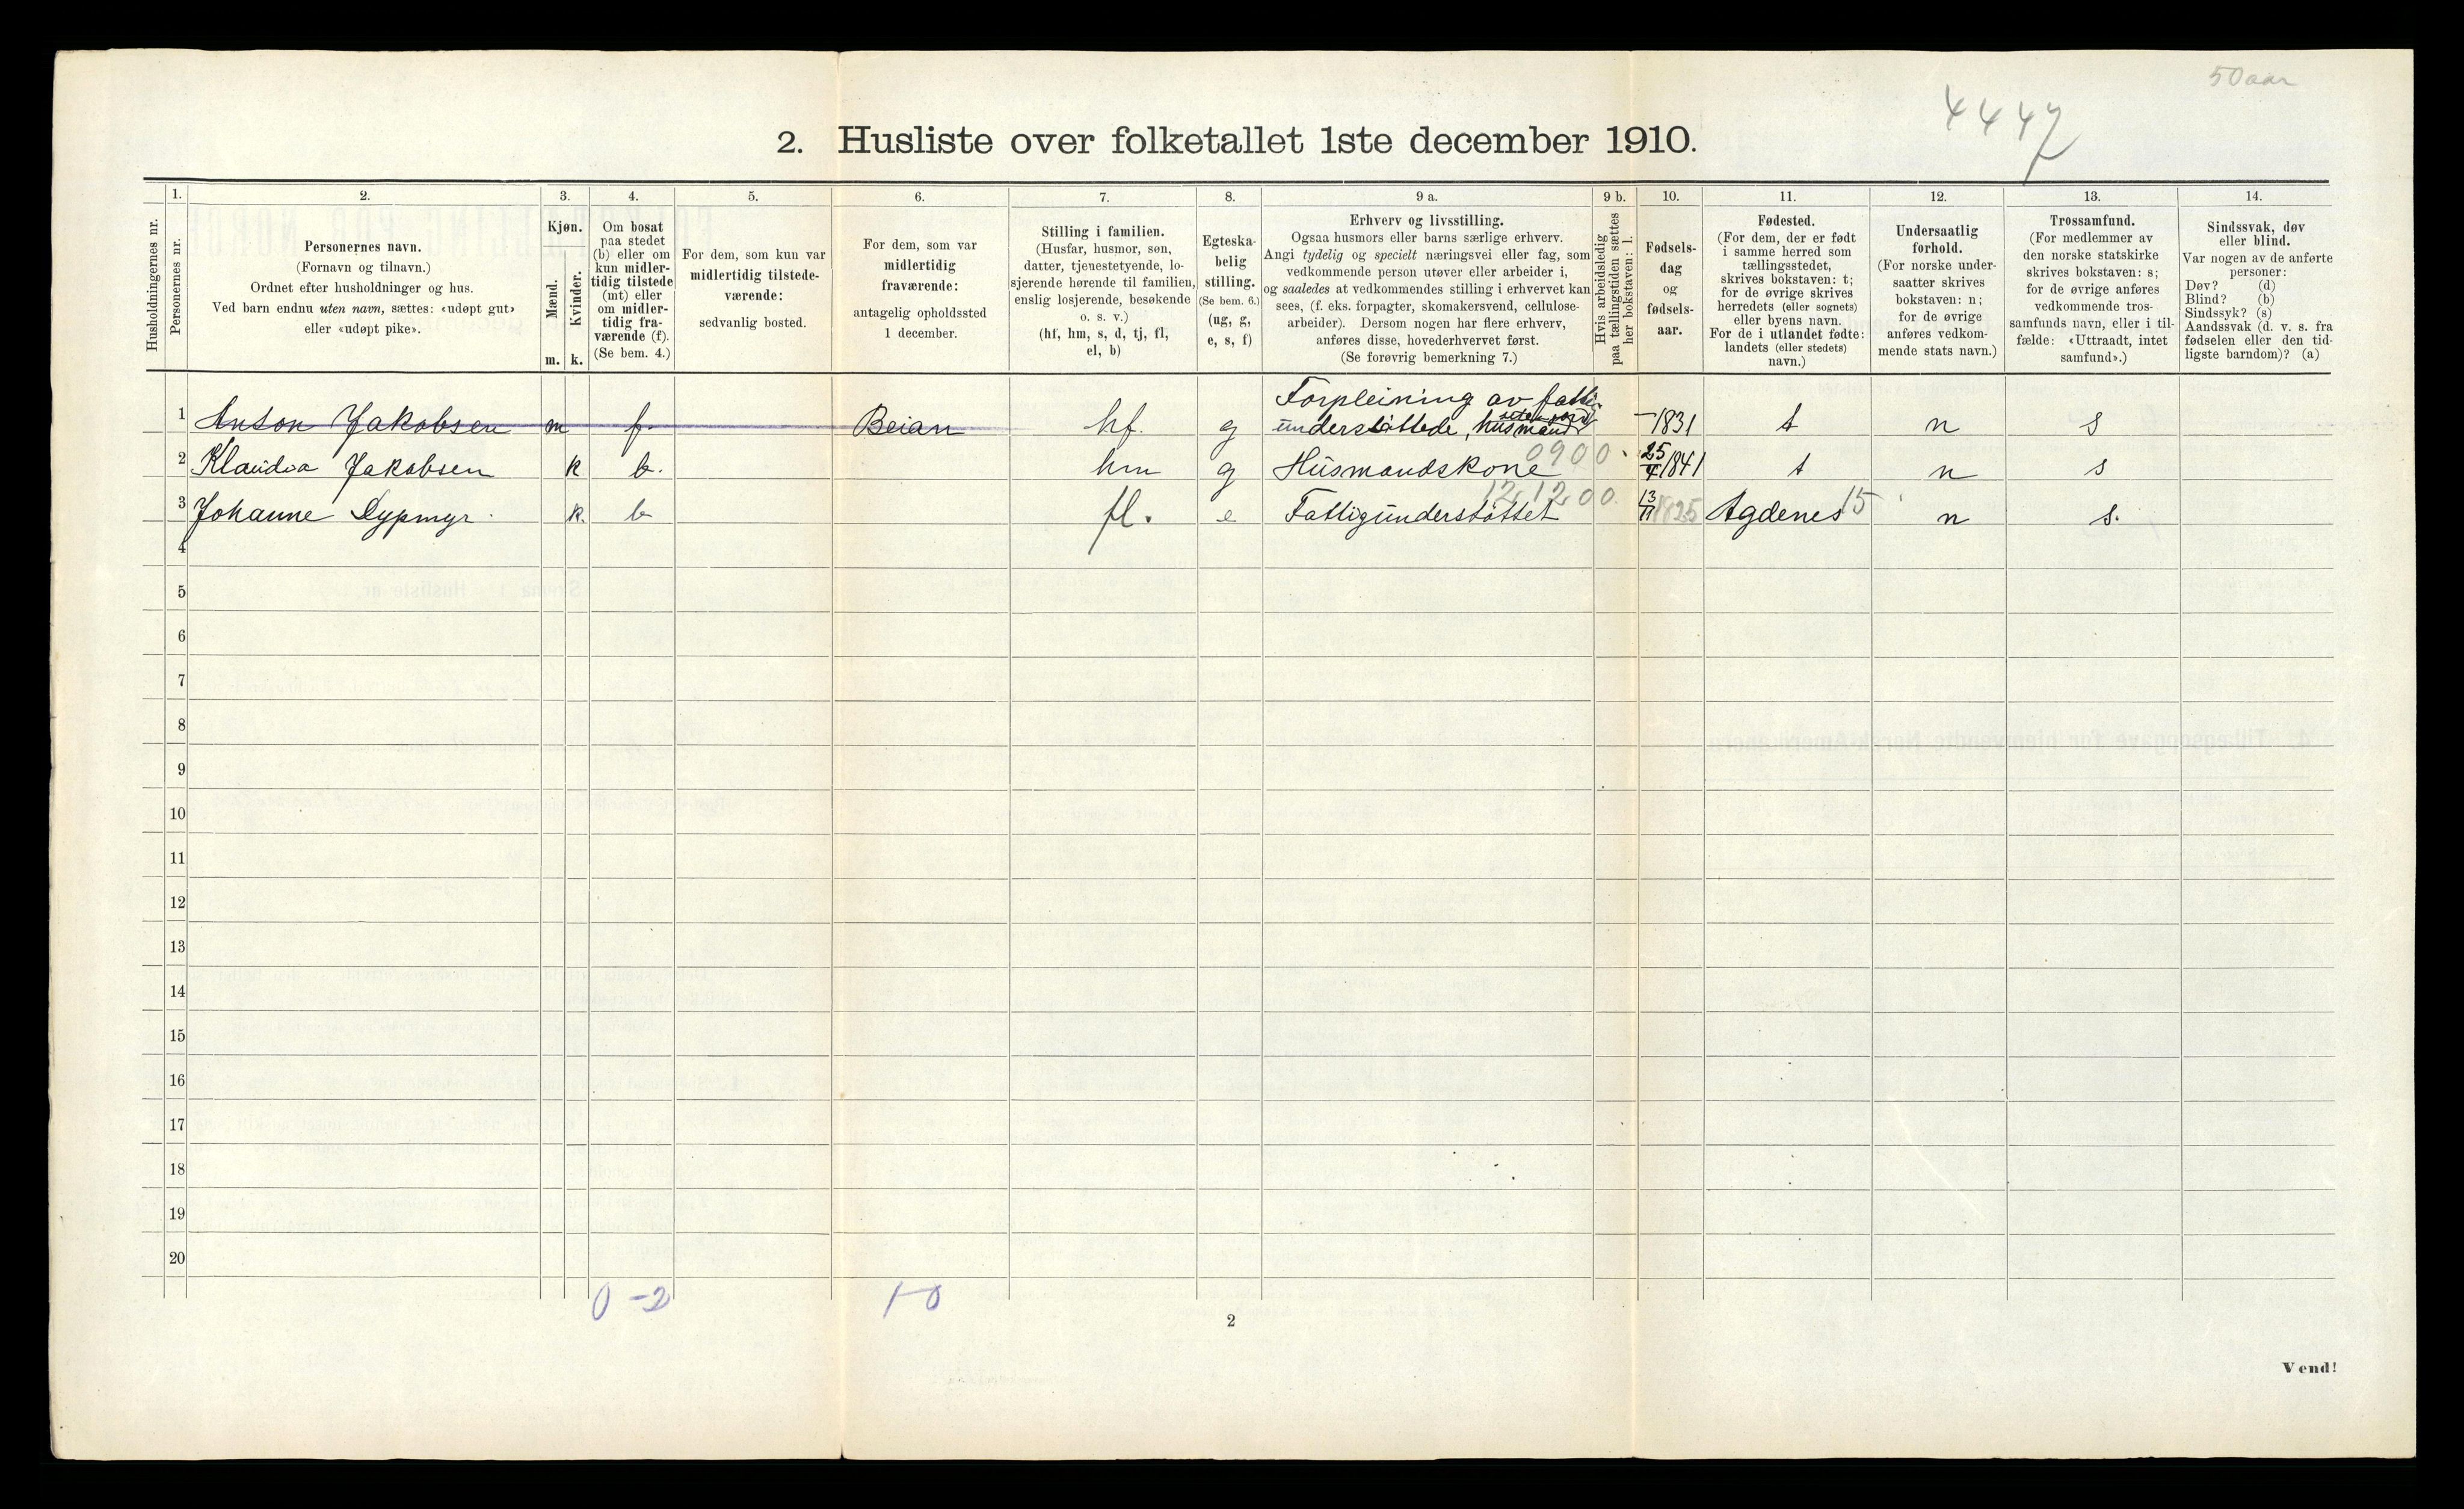 50 aar
4447
2. Husliste over folketallet 1ste december 1910.
Husholdningernes nr.
1.
Personernes nr.
2.
Personernes navn.
(Fornavn og tilnavn.)
Ordnet efter husholdninger og hus.
Ved barn endnu uten navn, sættes: «udøpt gut»
eller «udøpt pike».
3.
Kjøn.
Mænd.
Kvinder.
m. k.
4.
Om bosat
paa stedet
(b) eller om
kun midler-
tidig tilstede
(mt) eller
om midler-
tidig fra-
værende (f).
(Se bem. 4.)
5.
For dem, som kun var
midlertidig tilstede-
værende:
sedvanlig bosted.
6.
For dem, som var
midlertidig
fraværende:
antagelig opholdssted
1 december.
7.
Stilling i familien.
(Husfar, husmor, søn,
datter, tjenestetyende, lo-
sjerende hørende til familien,
enslig losjerende, besøkende
o. s. v.)
(hf, hm, s, d, tj, fl,
el, b)
8.
Egteska-
belig
stilling.
(Se bem. 6.)
(ug, g,
e, s, f)
9 a.
Erhverv og livsstilling.
Ogsaa husmors eller barns særlige erhverv.
Angi tydelig og specielt næringsvei eller fag, som
vedkommende person utøver eller arbeider i,
og saaledes at vedkommendes stilling i erhvervet kan
sees, (f. eks. forpagter, skomakersvend, cellulose-
arbeider). Dersom nogen har flere erhverv,
anføres disse, hovederhvervet først.
(Se forøvrig bemerkning 7.)
9 b.
Hvis arbeidsledig
paa tællingstiden sættes
her bokstaven: l.
10.
Fødsels-
dag
og
fødsels-
aar.
11.
Fødested.
(For dem, der er født
i samme herred som
tællingsstedet,
skrives bokstaven: t;
for de øvrige skrives
herredets (eller sognets)
eller byens navn.
For de i utlandet fødte:
landets (eller stedets)
navn.)
12.
Undersaatlig
forhold.
(For norske under-
saatter skrives
bokstaven: n;
for de øvrige
anføres vedkom-
mende stats navn.)
13.
Trossamfund.
(For medlemmer av
den norske statskirke
skrives bokstaven: s;
for de øvrige anføres
vedkommende tros-
samfunds navn, eller i til-
fælde: «Uttraadt, intet
samfund».)
14.
Sindssvak, døv
eller blind.
Var nogen av de anførte
personer:
Døv? (d)
Blind? (b)
Sindssyk? (s)
Aandssvak (d. v. s. fra
fødselen eller den tid-
ligste barndom)? (a)
Forpleining av fatti-
1 Anton Jakobsen m f. Beian hf. g understöttede, husmand -1831 t n s
0900
2 Klaudia Jakobsen k b. hm g Hüsmandskone 25/4 1841 t n s
121200.
3 Johanne Dypmyr. k. b fl. e Fattigünderstöttet 13/11 1825 Agdenes 15 n s.
4
5
6
7
8
9
10
11
12
13
14
15
16
17
18
19
20
0-2 1-0
2
Vend!